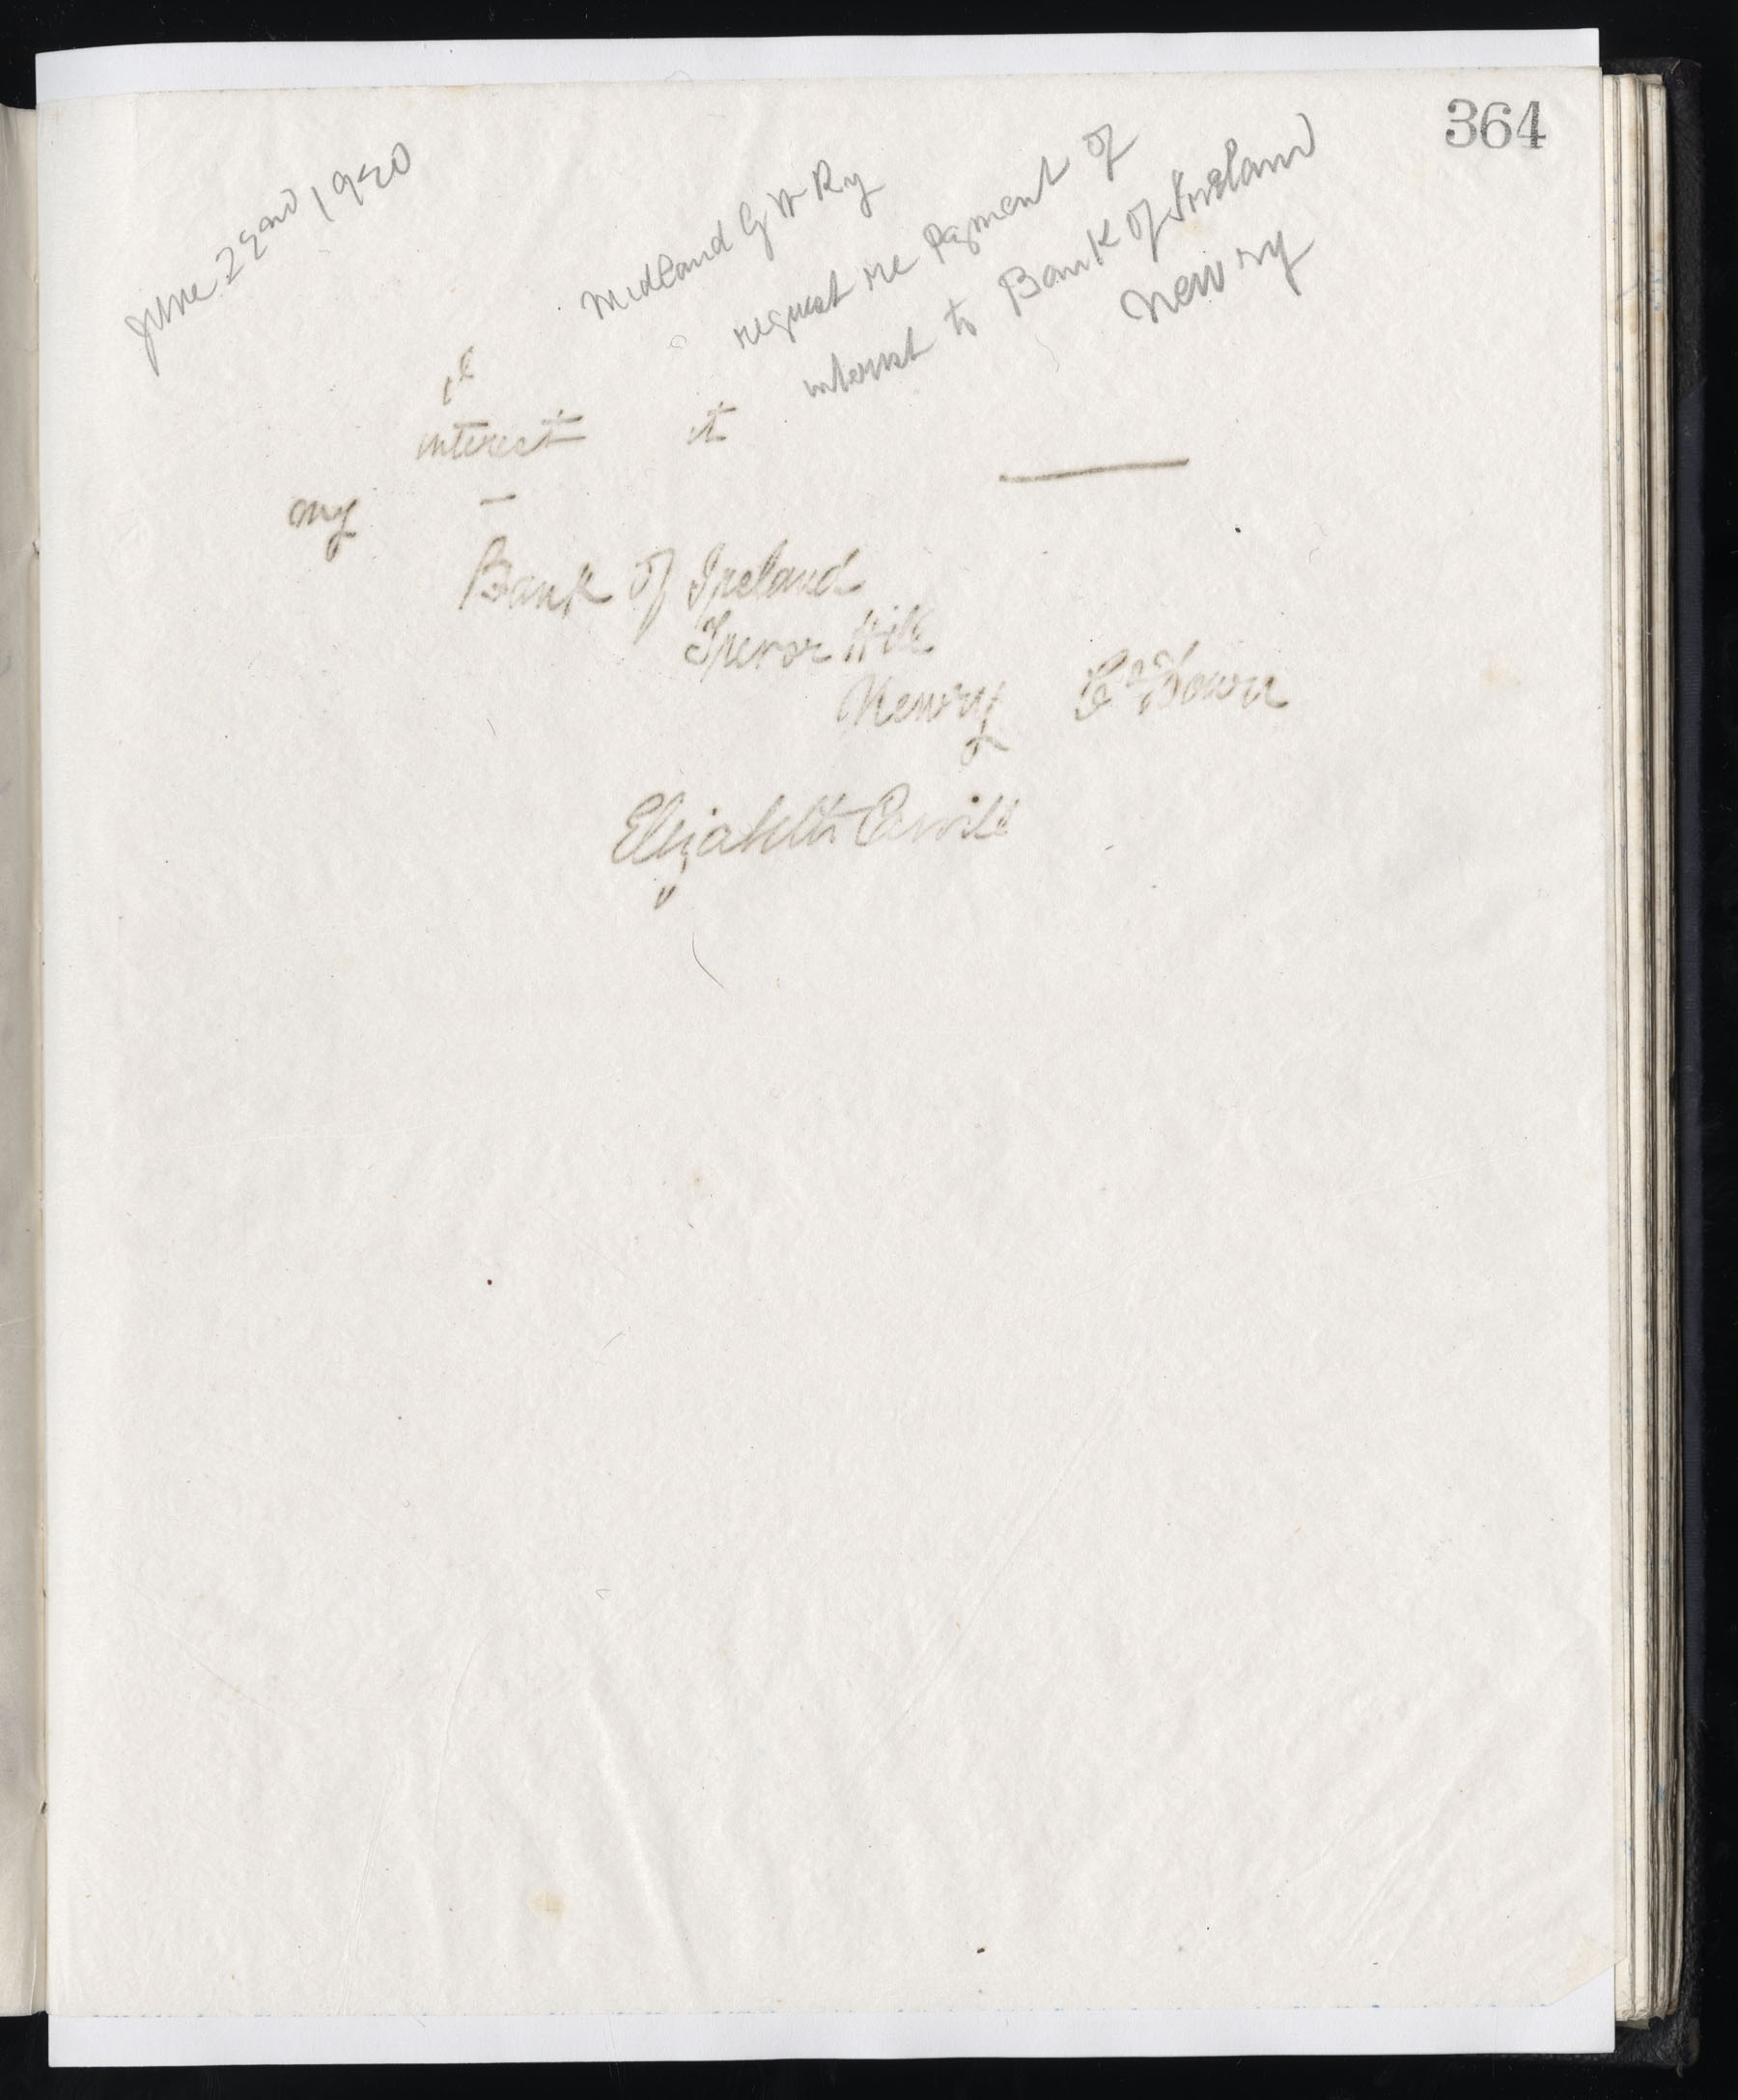 364
June 22nd 1920
Midland G W Ry
request re payment of
interest to Bank of Ireland
Newry
interest it
my
Bank of Ireland
Trevor Hill
Newry Co Down
Elizabeth Carvill